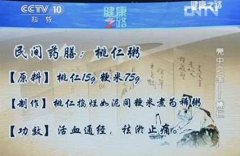 CCTV 10
科教
健康之路
民间药膳：桃仁粥
【原料】桃仁15g 粳米75g
【制作】桃仁捣烂如泥同粳米煮为稀粥
【功效】活血通经，祛淤止痛。